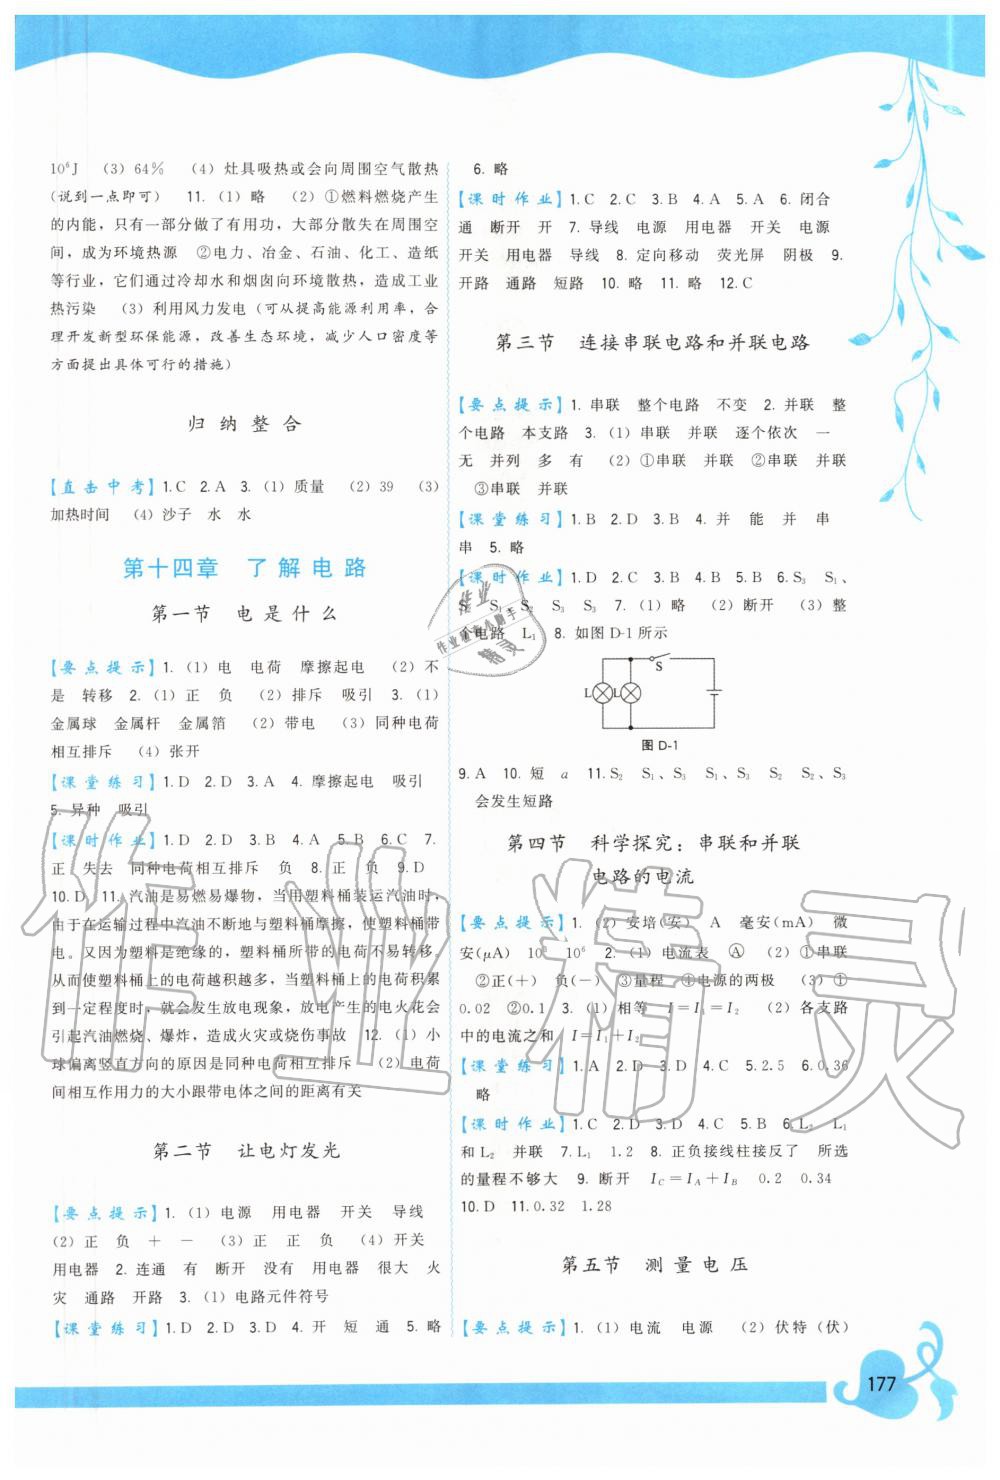 10⁶J　(3) 64%　(4) 灶具吸热或会向周围空气散热
(说到一点即可)　11. (1) 略　(2) ①燃料燃烧产生
的内能,只有一部分做了有用功,大部分散失在周围空
间,成为环境热源　②电力、冶金、石油、化工、造纸
等行业,它们通过冷却水和烟囱向环境散热,造成工业
热污染　(3) 利用风力发电 (可从提高能源利用率,合
理开发新型环保能源,改善生态环境,减少人口密度等
方面提出具体可行的措施)
归 纳 整 合
【直击中考】1. C　2. A　3. (1) 质量　(2) 39　(3)
加热时间　(4) 沙子　水　水
第十四章　了 解 电 路
第一节　电 是 什 么
【要点提示】1. (1) 电　电荷　摩擦起电　(2) 不
是　转移　2. (1) 正　负　(2) 排斥　吸引　3. (1)
金属球　金属杆　金属箔　(2) 带电　(3) 同种电荷
相互排斥　(4) 张开
【课堂练习】1. D　2. D　3. A　4. 摩擦起电　吸引
5. 异种　吸引
【课时作业】1. D　2. D　3. B　4. A　5. B　6. C　7.
正　失去　同种电荷相互排斥　负　8. 正　负　9. D
10. D　11. 汽油是易燃易爆物,当用塑料桶装运汽油时,
由于在运输过程中汽油不断地与塑料桶摩擦,使塑料桶带
电。又因为塑料是绝缘的,塑料桶所带的电荷不易转移,
从而使塑料桶上的电荷越积越多,当塑料桶上的电荷积累
到一定程度时,就会发生放电现象,放电产生的电火花会
引起汽油燃烧、爆炸,造成火灾或烧伤事故　12. (1) 小
球偏离竖直方向的原因是同种电荷相互排斥　(2) 电荷
间相互作用力的大小跟带电体之间的距离有关
第二节　让电灯发光
【要点提示】1. (1) 电源　用电器　开关　导线
(2) 正　负　+　−　(3) 正　正　负　(4) 开关
用电器　2. 连通　有　断开　没有　用电器　很大　火
灾　通路　开路　3. (1) 电路元件符号
【课堂练习】1. D　2. D　3. D　4. 开　短　通　5. 略
6. 略
【课时作业】1. C　2. C　3. B　4. A　5. A　6. 闭合
通　断开　开　7. 导线　电源　用电器　开关　电源
开关　用电器　导线　8. 定向移动　荧光屏　阴极　9.
开路　通路　短路　10. 略　11. 略　12. C
第三节　连接串联电路和并联电路
【要点提示】1. 串联　整个电路　不变　2. 并联　整
个电路　本支路　3. (1) 串联　并联　逐个依次　一
无　并列　多　有　(2) ①串联　并联　②串联　并联
③串联　并联
【课堂练习】1. B　2. D　3. B　4. 并　能　并　串
串　5. 略
【课时作业】1. D　2. C　3. D　4. B　5. B　6. S₃　S₁、
S₂　S₁　S₂　S₃　S₃　7. (1) 略　(2) 断开　(3) 整
个电路　L₁　8. 如图 D-1 所示
S
L L
图 D-1
9. A　10. 短　a　11. S₂　S₁、S₃　S₁、S₃　S₂　S₂、S₃
会发生短路
第四节　科学探究：串联和并联
电路的电流
【要点提示】1. (2) 安培(安)　A　毫安(mA)　微
安(μA)　10³　10⁶　2. (1) 电流表　Ⓐ　(2) ①串联
②正(+)　负(−)　③量程　④电源的两极　(3) ①
0.02　②0.1　3. (1) 相等　I=I₁=I₂　(2) 各支路
中的电流之和　I=I₁+I₂
【课堂练习】1. A　2. D　3. D　4. C　5. 2.5　6. 0.36
略
【课时作业】1. C　2. D　3. D　4. C　5. B　6. L₂　L₁
和 L₂　并联　7. L₁　1.2　8. 正负接线柱接反了　所选
的量程不够大　9. 断开　I_C=I_A+I_B　0.2　0.34
10. D　11. 0.32　1.28
第五节　测 量 电 压
【要点提示】1. (1) 电流　电源　(2) 伏特(伏)
177
作业精灵